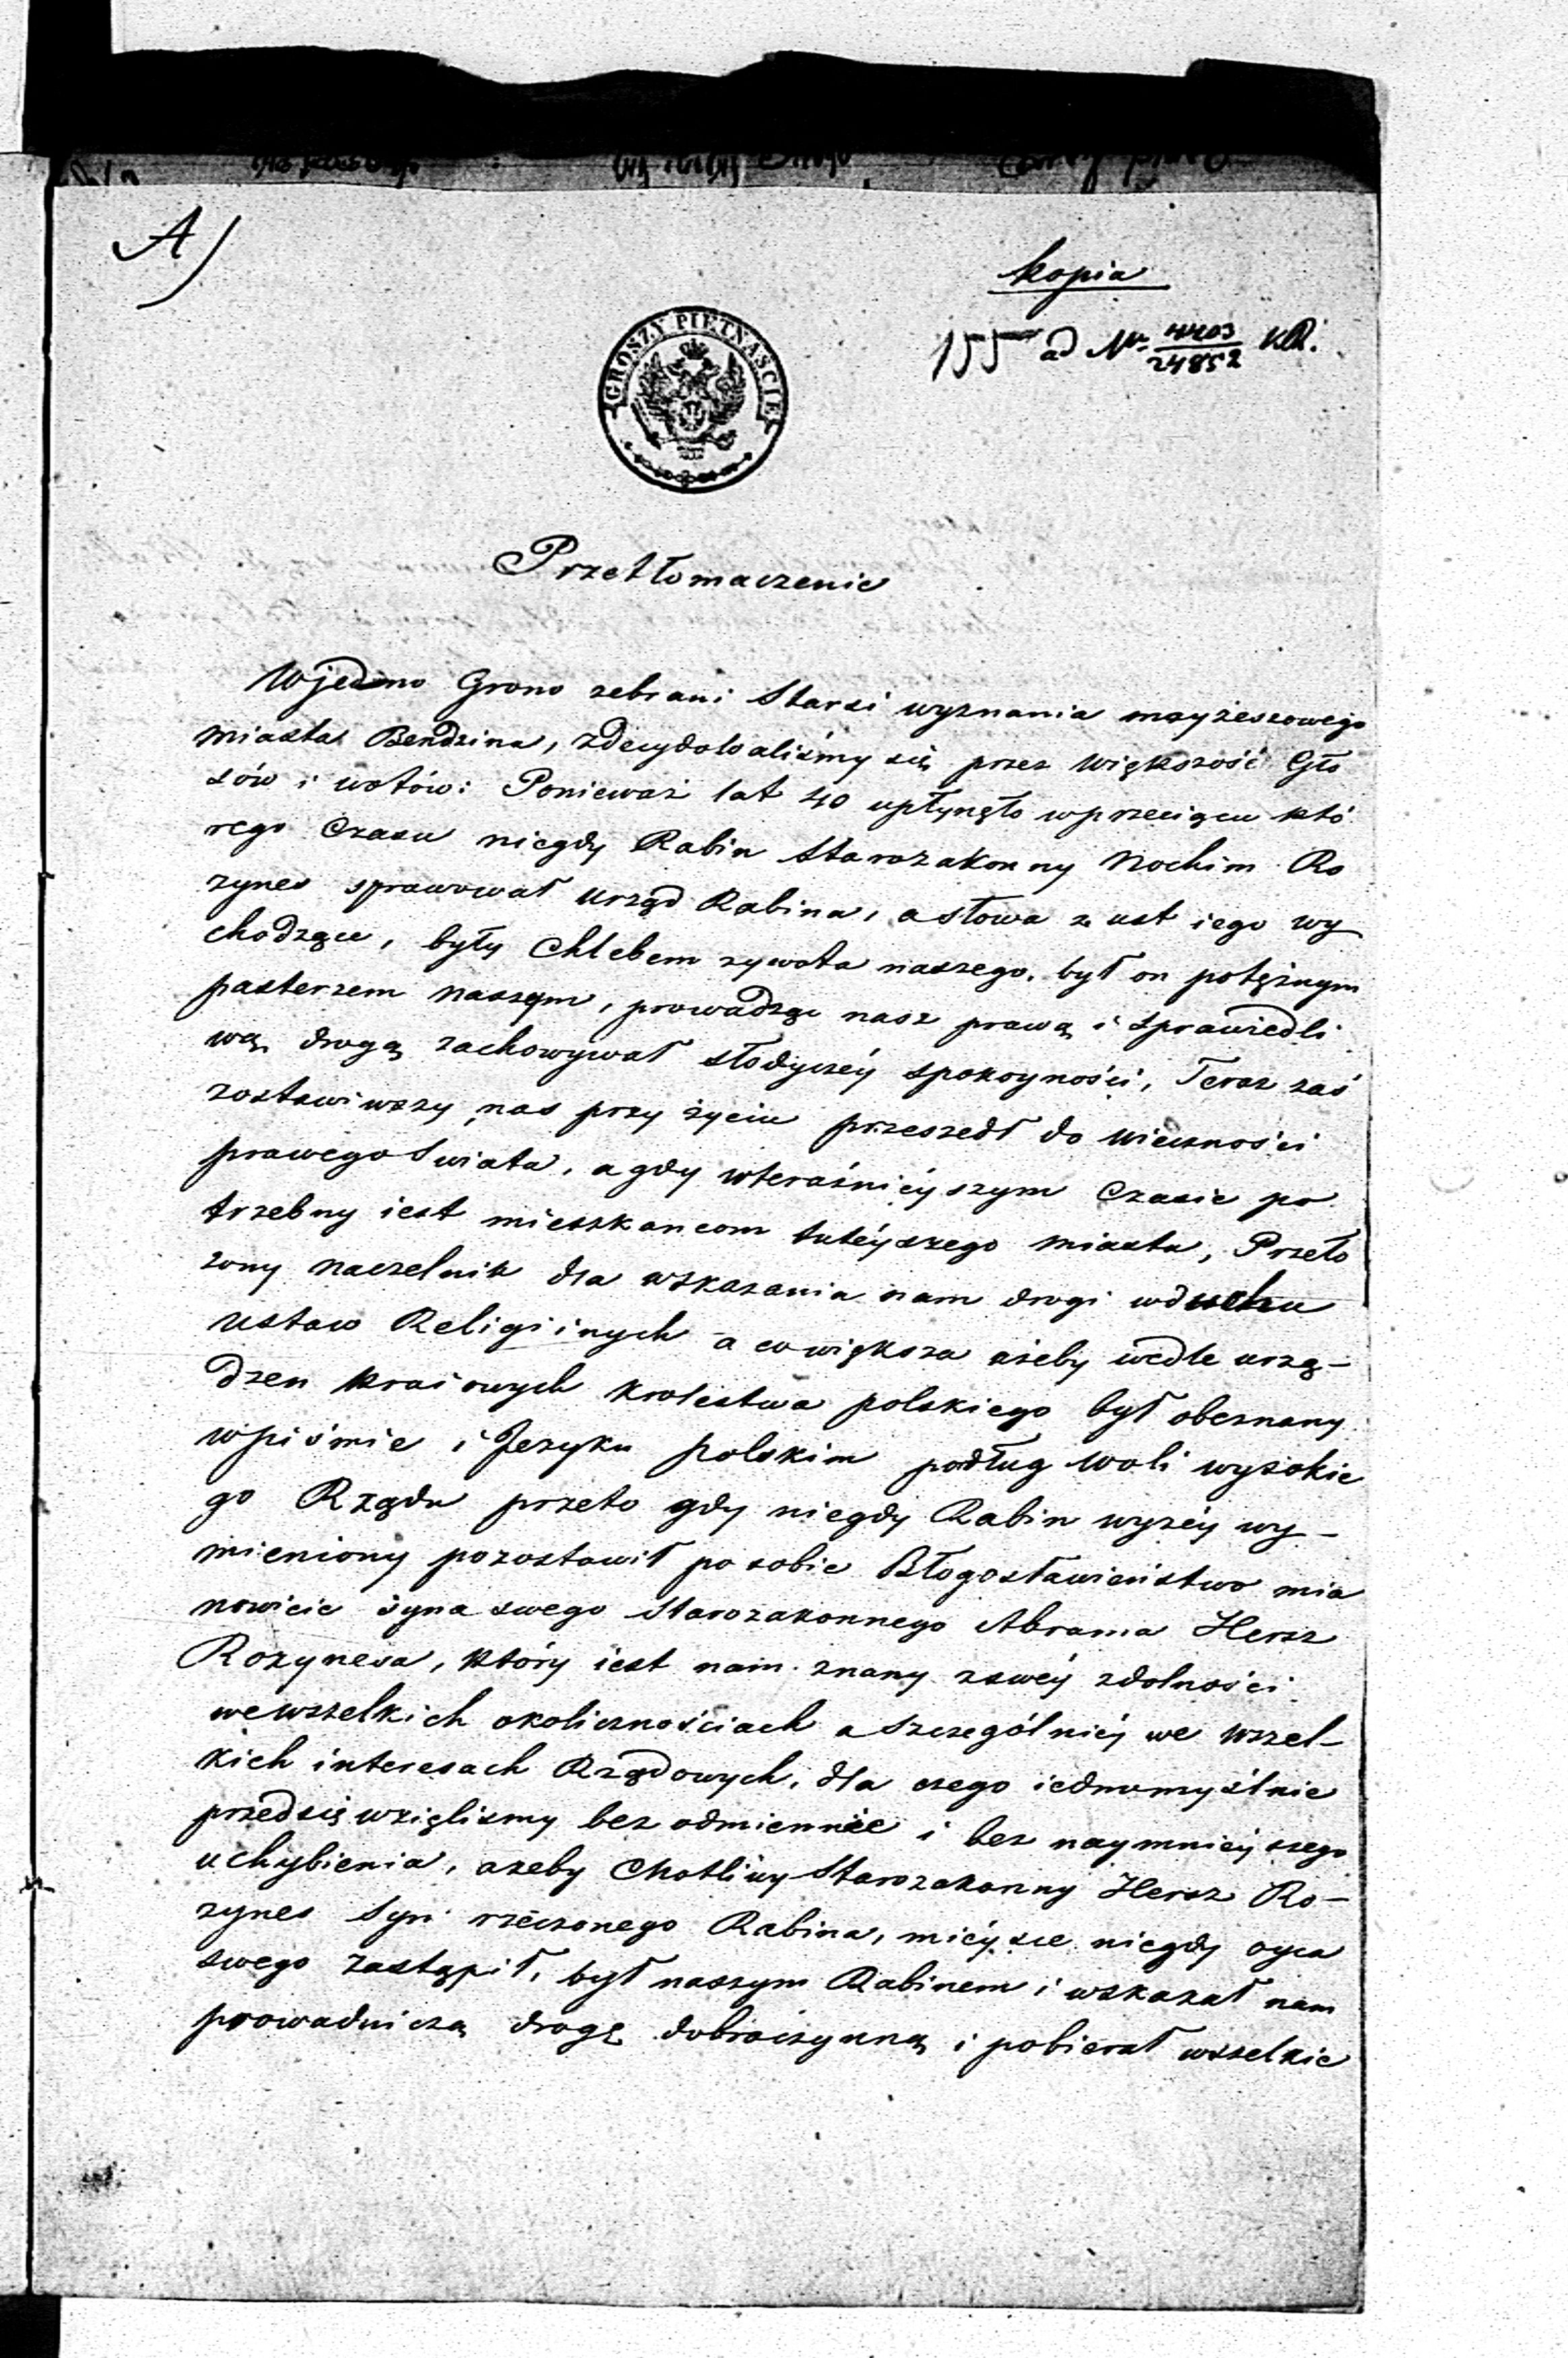 A)
kopia
155 ad Nr 4403/24852 KR.
GROSZY PIETNAŚCIE
Przetłomaczenie
Wjedno Grono zebrani Starsi wyznania moyżeszowego
miasta Bendzina, zdecydowaliśmy się przez większość Gło
sów i wotów: Ponieważ lat 40 upłynęło wprzeciągu któ
rego Czasu niegdy Rabin Starozakonny Nochim Ro
zynes sprawował urząd Rabina, a słowa z ust iego wy
chodzące, były Chlebem zywota naszego. był on potężnym
pasterzem naszym, prowadząc nasz prawą i sprawiedli
wą drogą zachowywał słodyczéy spokoyności, Teraz zaś
zostawiwszy nas przy życiu przeszedł do wieczności
prawego Swiata, a gdy wteraśnieyszym Czasie po
trzebny iest mieszkancom tutéyszego miasta, Przeło
zony naczelnik dla wskazania nam drogi wduchu
ustaw Religiinych a co większa ażeby wedle urzą-
dzen kraiowych krolestwa polskiego był obeznany
wpiśmie i Jezyku polskim podług woli wysokie
go Rządu przeto gdy niegdy Rabin wyzéy wy-
mieniony pozostawił po sobie Błogosławieństwo mia
nowicie syna swego Starozakonnego Abrama Hersz
Rozynesa, który iest nam znany zswéy zdolności
we wszelkich okolicznościach a szczególniéy we wszel-
kich interesach Rządowych, dla czego iednomyślnie
przedsięwzięlismy bez odmiennie i bez naymnieyszego
uchybienia, azeby Cnotliwy Starozakonny Hersz Ro-
zynes Syn rzeczonego Rabina, miéysce niegdy oyca
swego zastąpił, był naszym Rabinem i wskazał nam
prowadniczą drogę dobroczynną i pobierał wszelkie